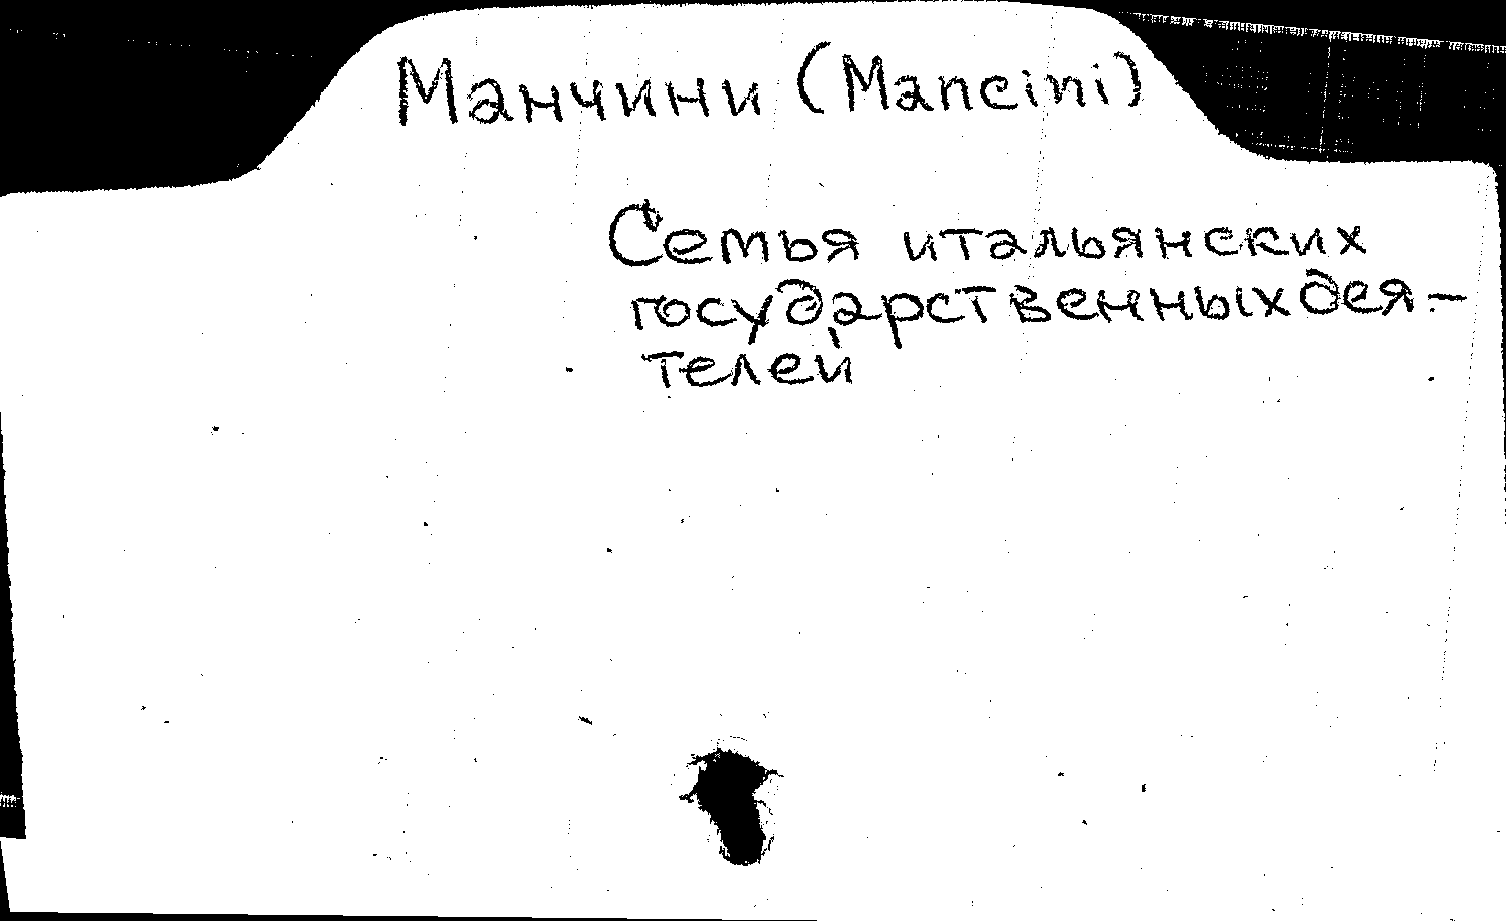 Манчини (Mancini)
Семья итальянских
государственных дея-
телей